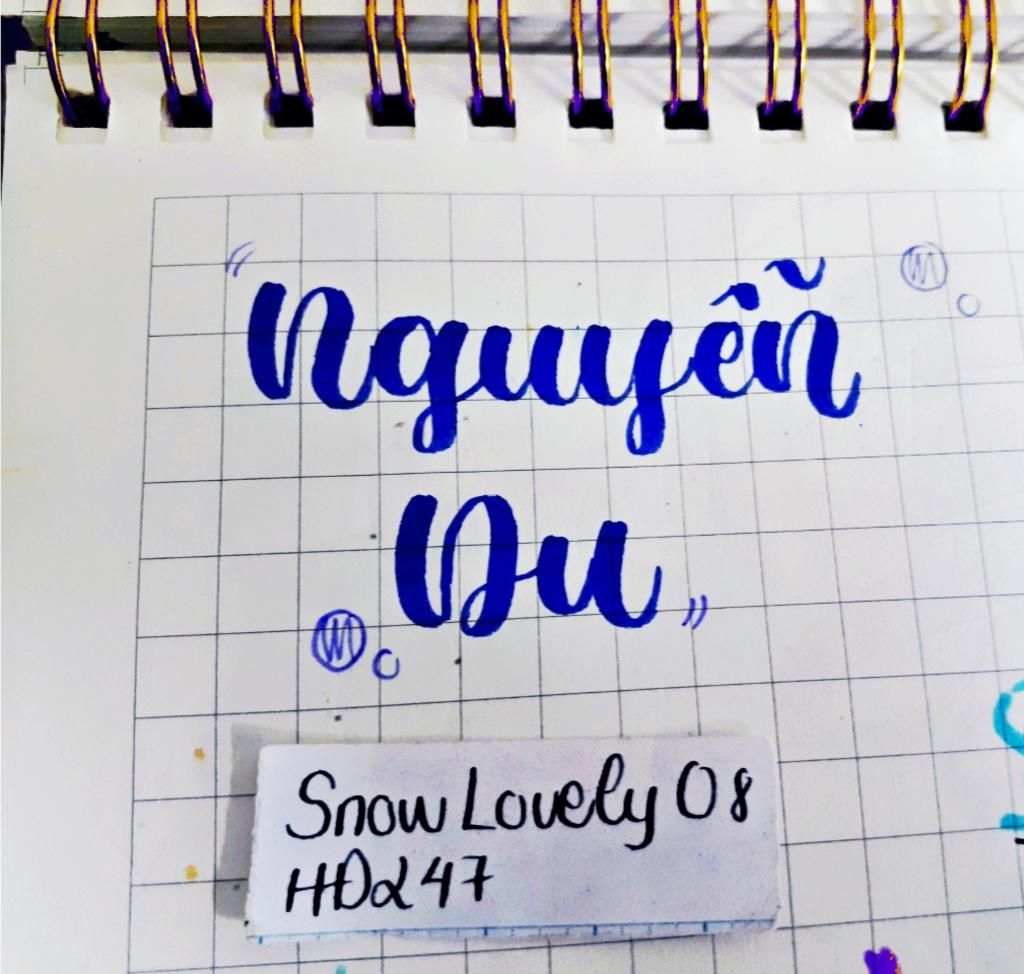 “Nguyễn
Du”
Snow Lovely 08
HĐ247